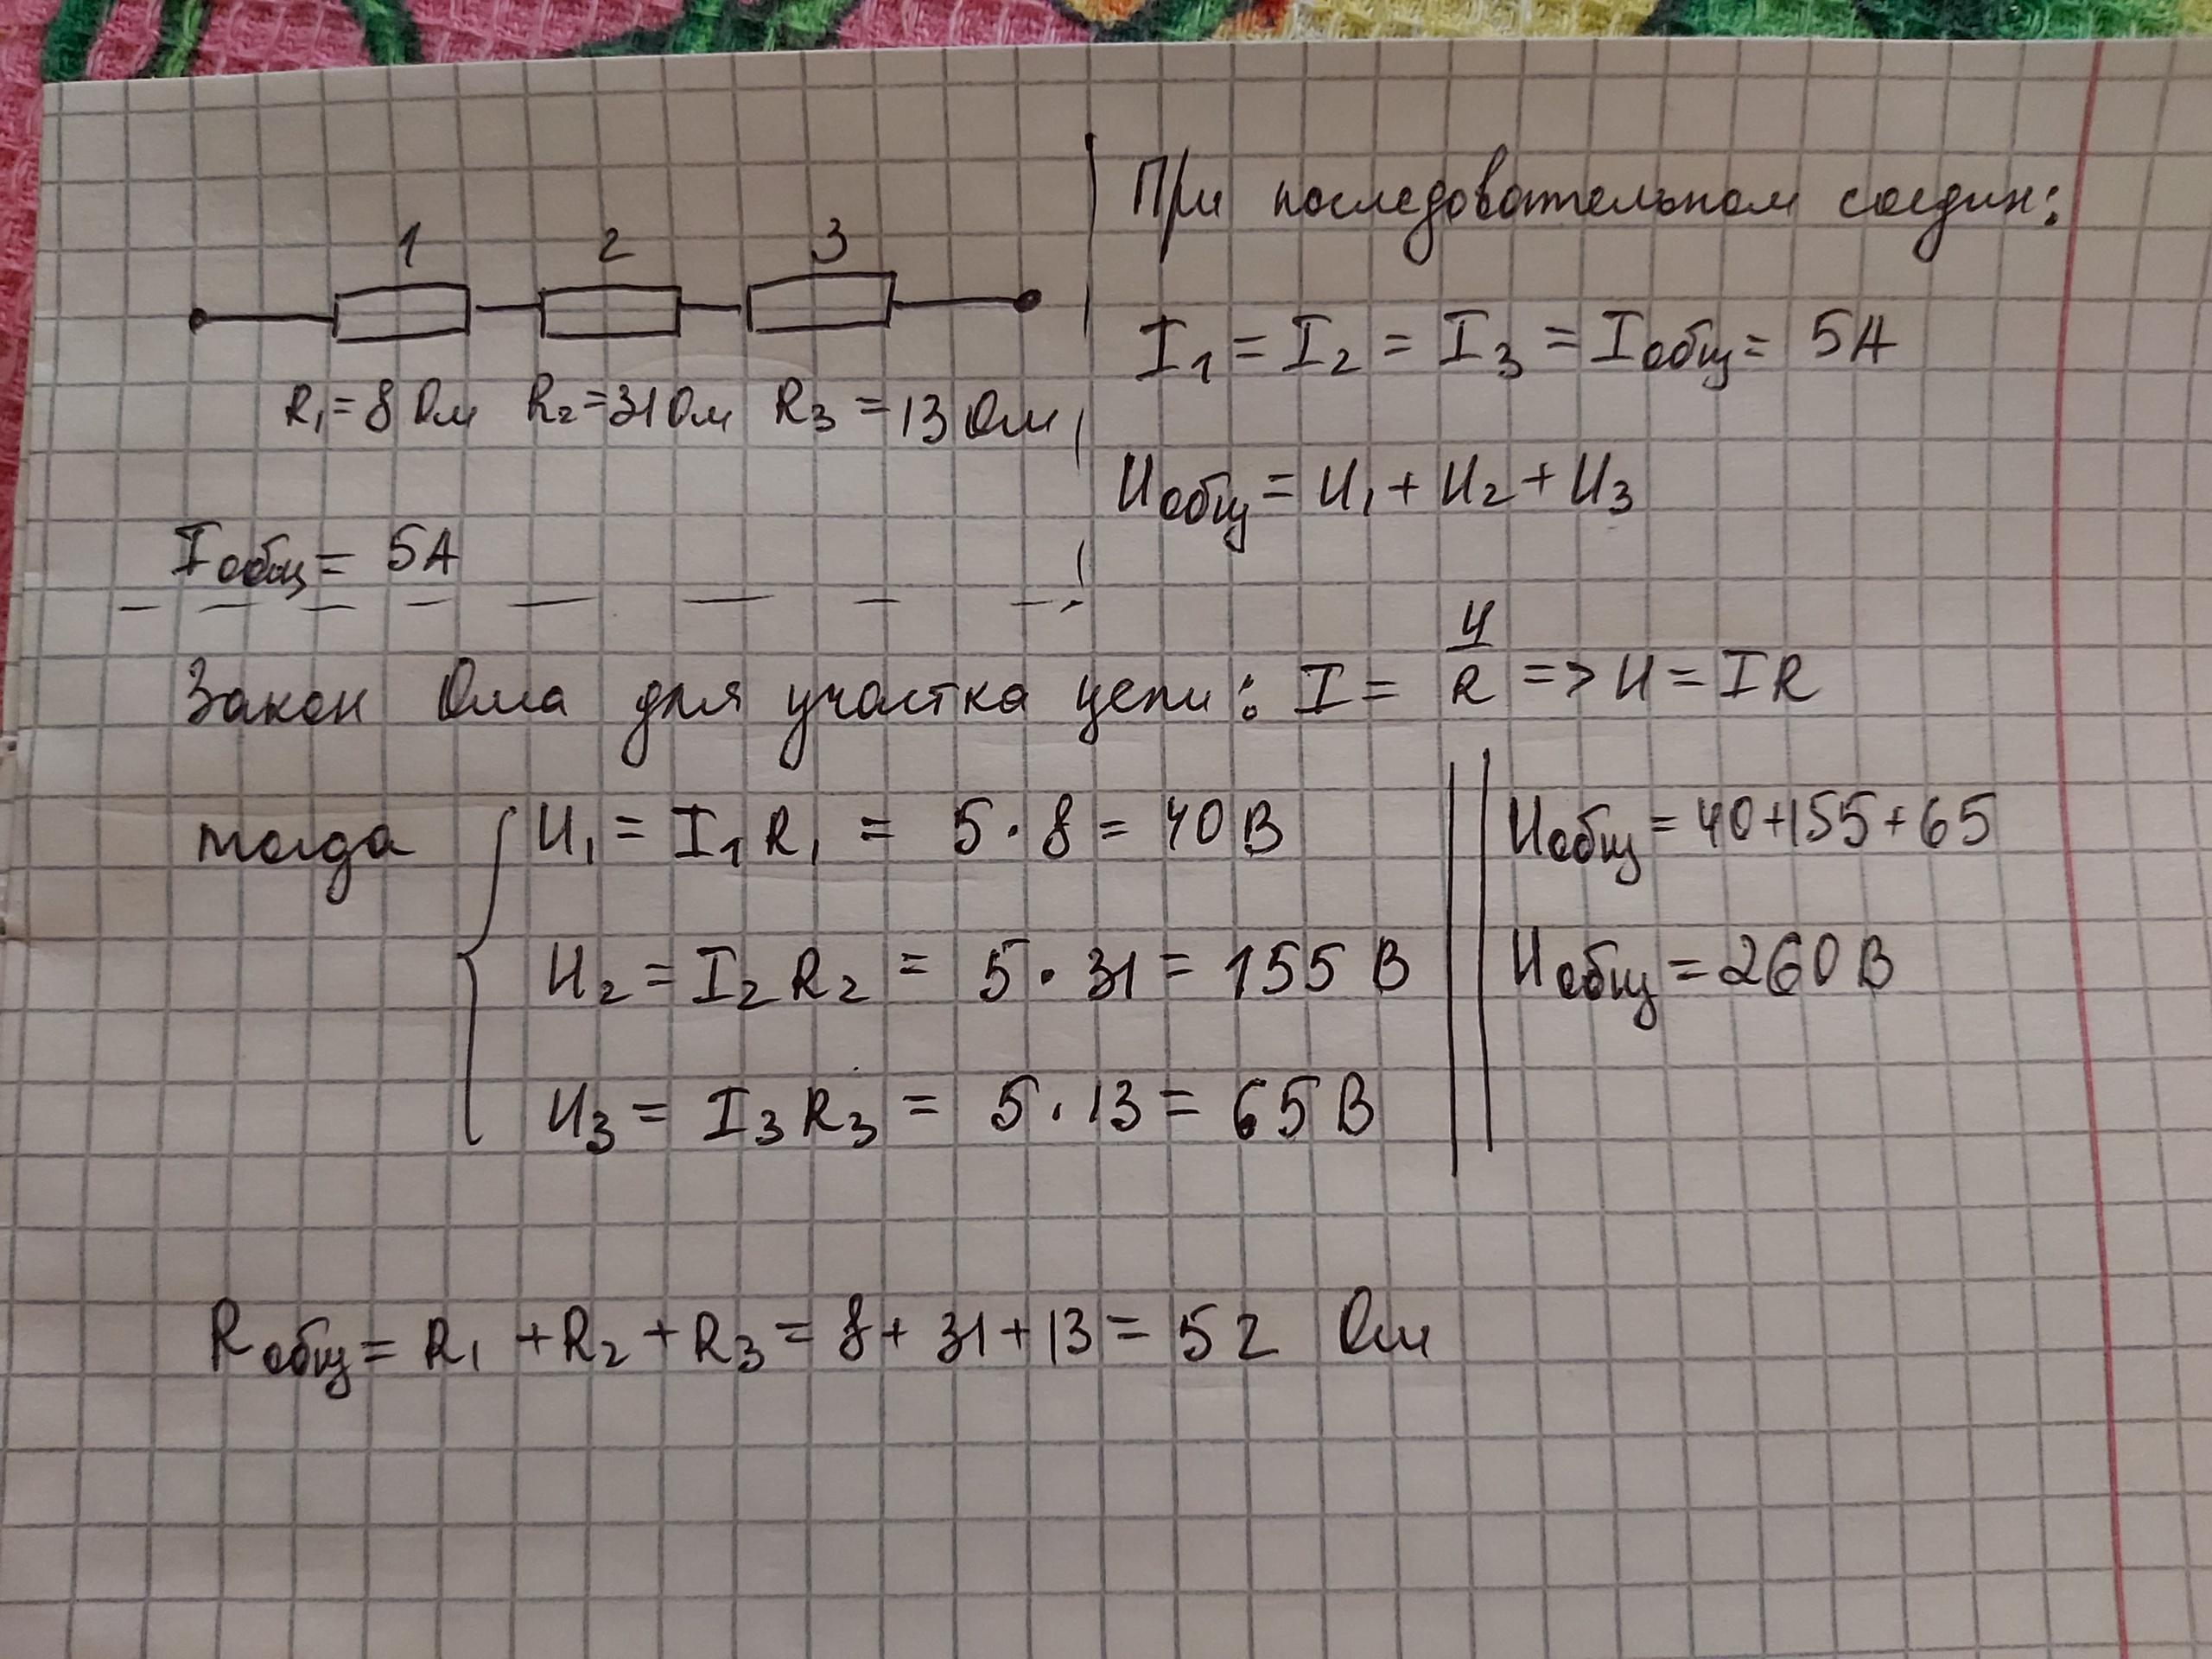 1 2 3
R₁=8 Ом R₂=31 Ом R₃=13 Ом
Iобщ= 5А
При последовательном соедин:
I₁ = I₂ = I₃ = Iобщ= 5А
Uобщ= U₁ + U₂ + U₃
Закон Ома для участка цепи: I = U/R => U = IR
тогда U₁ = I₁R₁ = 5·8 = 40 В
U₂ = I₂R₂ = 5·31 = 155 В
U₃ = I₃R₃ = 5·13 = 65 В
Uобщ= 40+155+65
Uобщ= 260 В
Rобщ= R₁ + R₂ + R₃ = 8 + 31 + 13 = 52 Ом